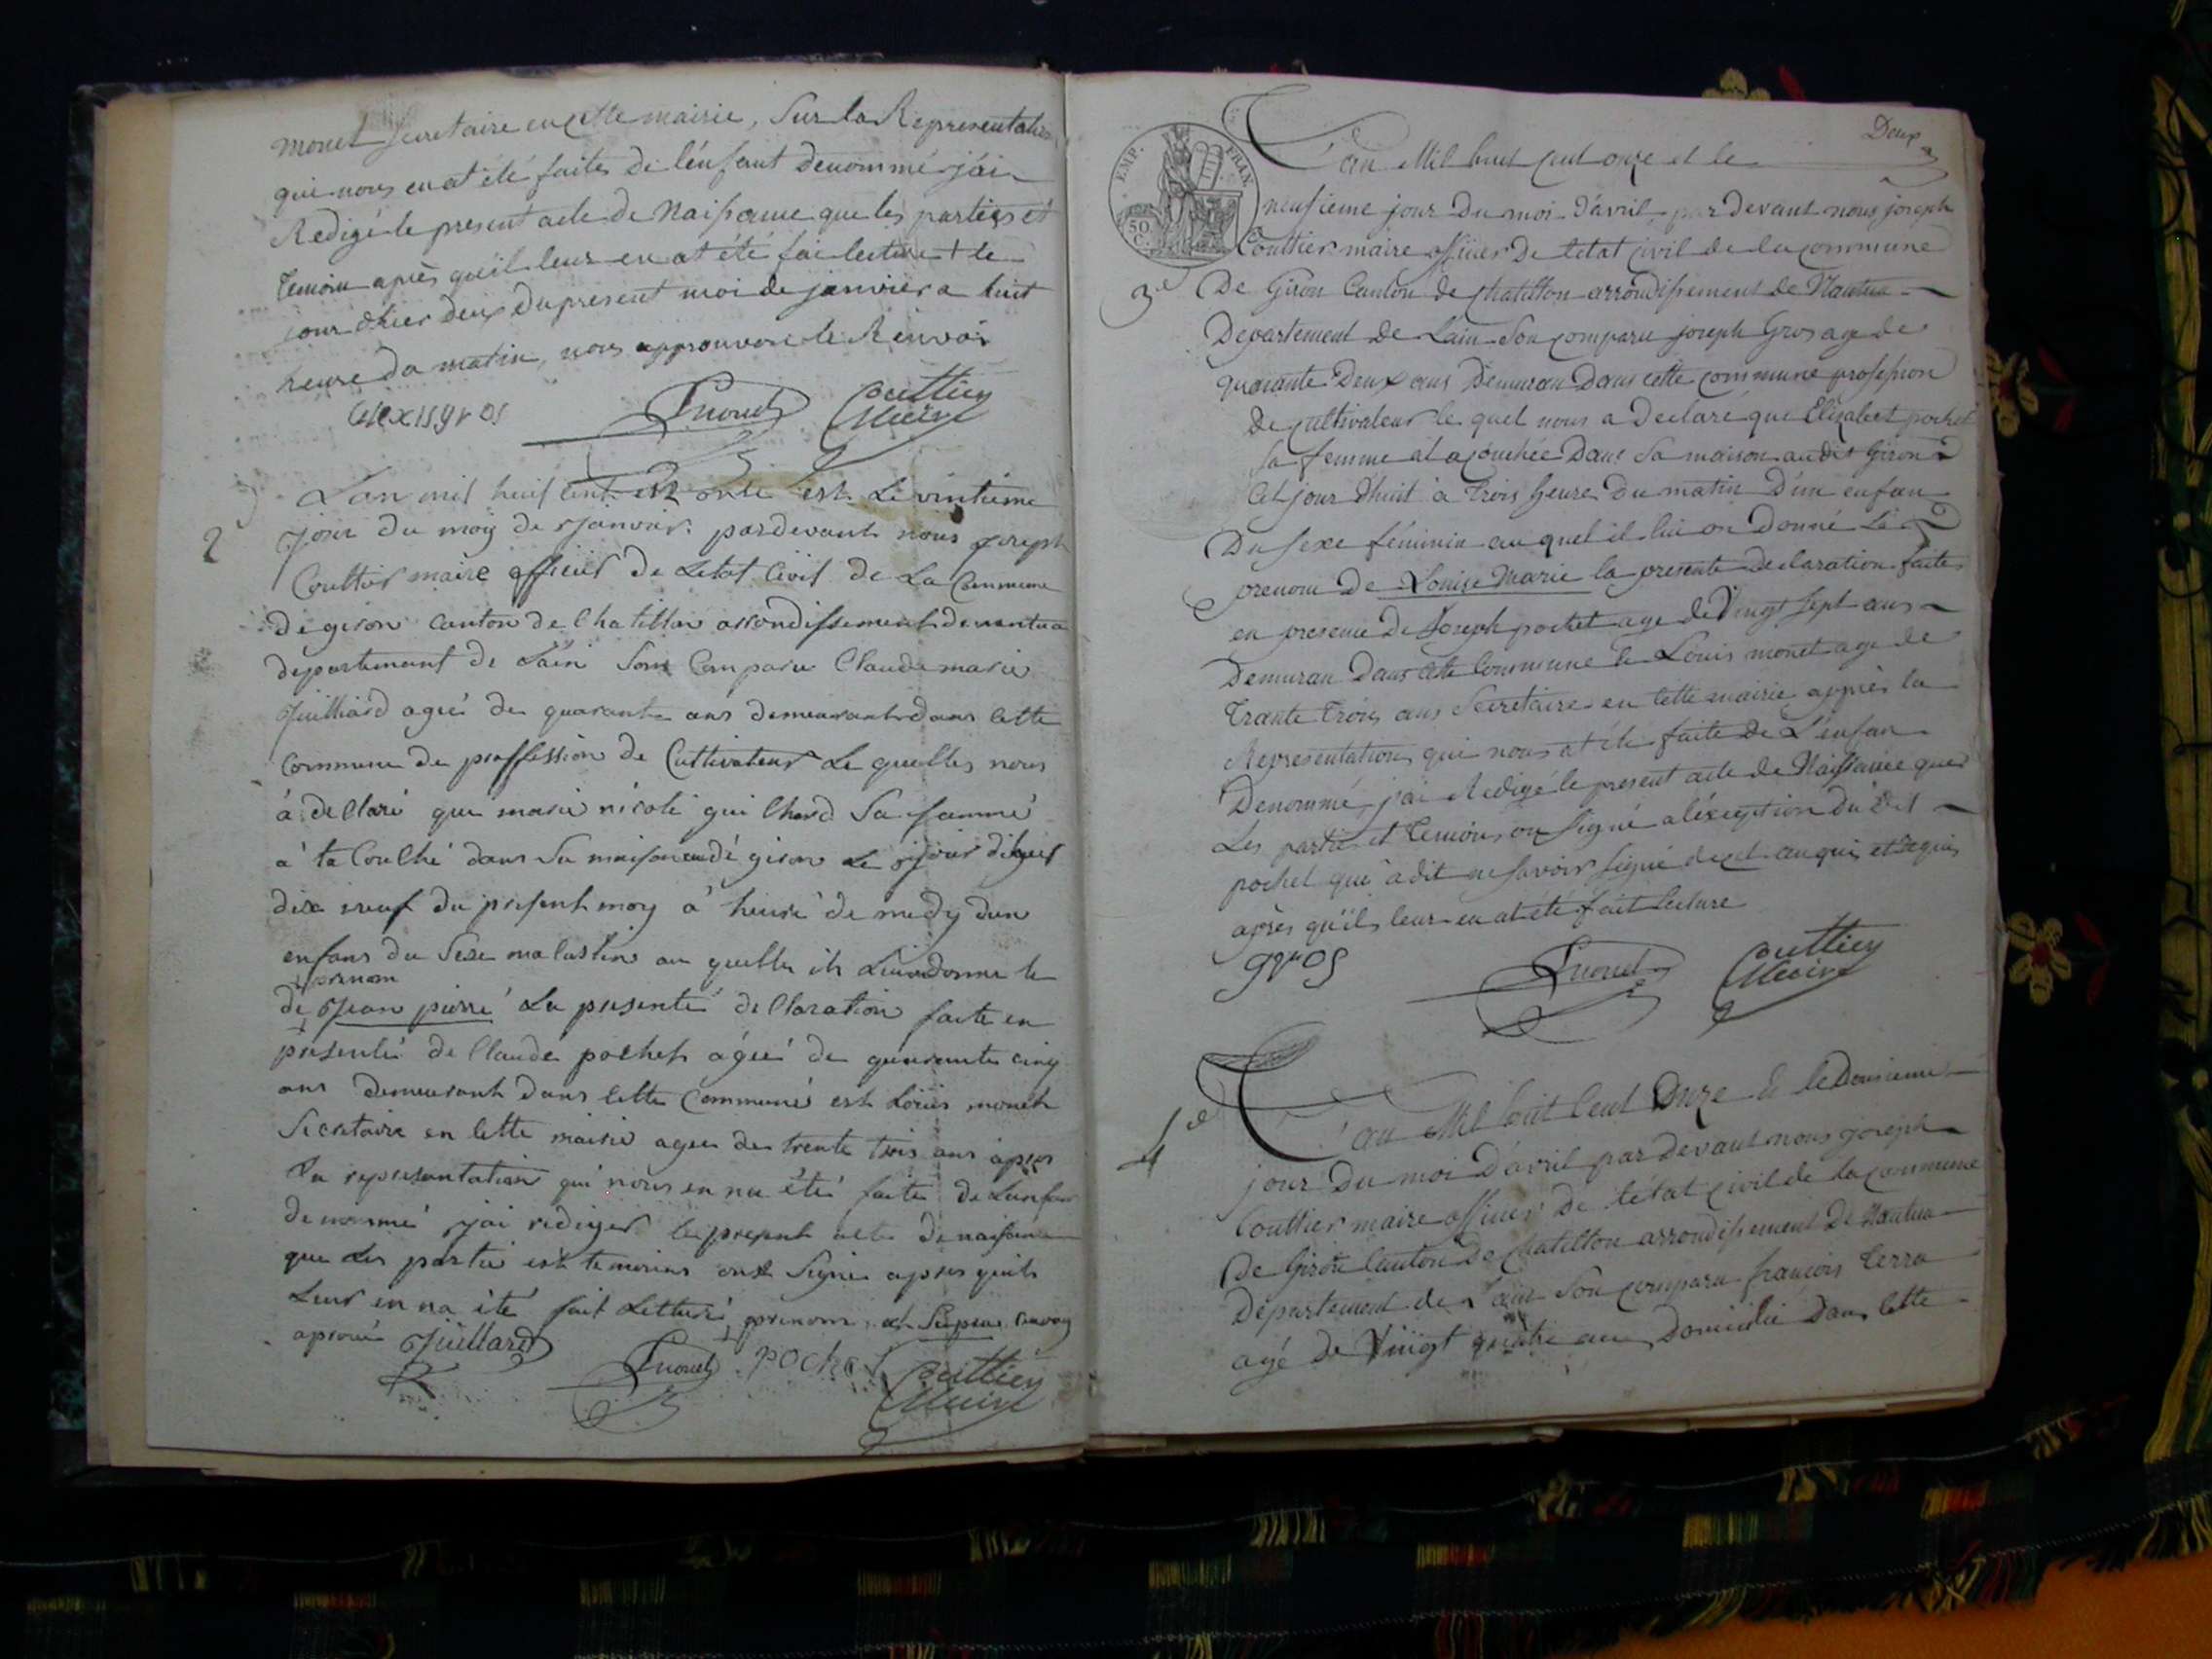 monet secretaire en cette mairie, Sur la Representation
qui nous en at été faites de l'enfant denommé j'ai
Redigé le present acte de Naissance que les parties et
temoin après qu'il leur en at été fai lecture + le
jour d'hier deux du present moi de janvier a huit
heure du matin, nous approuvons le Renvoi
alexis gros
Lmonet
Couttier
Maire
2
L'an mil huif cent est onse est Le vintieme
Jour du moy de Janvier. pardevant nous joseph
Couttier maire officier De Letat Civil de La Commune
de giron canton de Chatillon arrondissement de nantua
departement de Lain Sont Comparu Claude marie
Juilliard ageé de quarante ans demeurant dans cette
Commune de proffession de Cultivateur Le quelles nous
á declaré que marie nicole guichard Sa famme
a ta Couché dans Sa maison audi giron Le jour
dix neuf du present moy a heure de midy dun
enfans du Sexe malastin au quelle ils Lui donne le
prenom
de Jean pierre La presente declaration faite en
presence de Claude pochet ágeé de quarante cinq
ans demeurant dans cette Commune est Loüis monet
Secretaire en cette mairie agee de trente trois ans apres
la representation qui nous en na été faite de Lanfan
denommé jai rediger le present acte de naisance
que Les partie est temoins onst Signe apres quils
Leur en na été fait Letture, prenom,
aprouve Juillard
Lmonet
pochet
Couttier
Maire
Deux
EMP. FRAN.
50.
C.
L'an Mil huit cent onze et le
neufieme jour Du moi D'avril par devant nous joseph
Couttier maire officier De l'etat civil de la commune
3e
De Giron Canton de chatillon arrondissement de Nantua
Departement de Lain Son comparu joseph Gros age de
quarante Deux ans Demuran Dans cette commune profession
De cultivateur le quel nous a Declaré que Elizabet pochet
Sa femme at acouchée Dans Sa maison audit Giron
Cet jour d'huit à trois heure Du matin D'un enfan
Du sexe féminin auquel il lui on Donné Le
prenom De Louise Marie la presente Declaration faite
en presence De Joseph pochet age de Vingt sept ans
Demuran Dans cette Commune & Louis monet age de
trante trois ans Secretaire en cette mairie appres la
Representation qui nous at été faite de L'enfan
Denommé j'ai Redigé le present acte de Naissance que
Les partie et temoins on Signé a l'exception du dit
pochet que à dit ne savoir signé de cet
après qu'il leur en at été fait lecture
gros
Lmonet
Couttier
Maire
4e
L'an Mil huit Cent Onze & le Dousieme
jour Du moi D'avril par devant nous joseph
Couttier maire officier de l'état civil de la commune
De Giron Canton De chatillon arrondissement De Nantua
Département de Lain Son comparu françois terra
agé de Vingt quatre ans Domicilié Dans cette